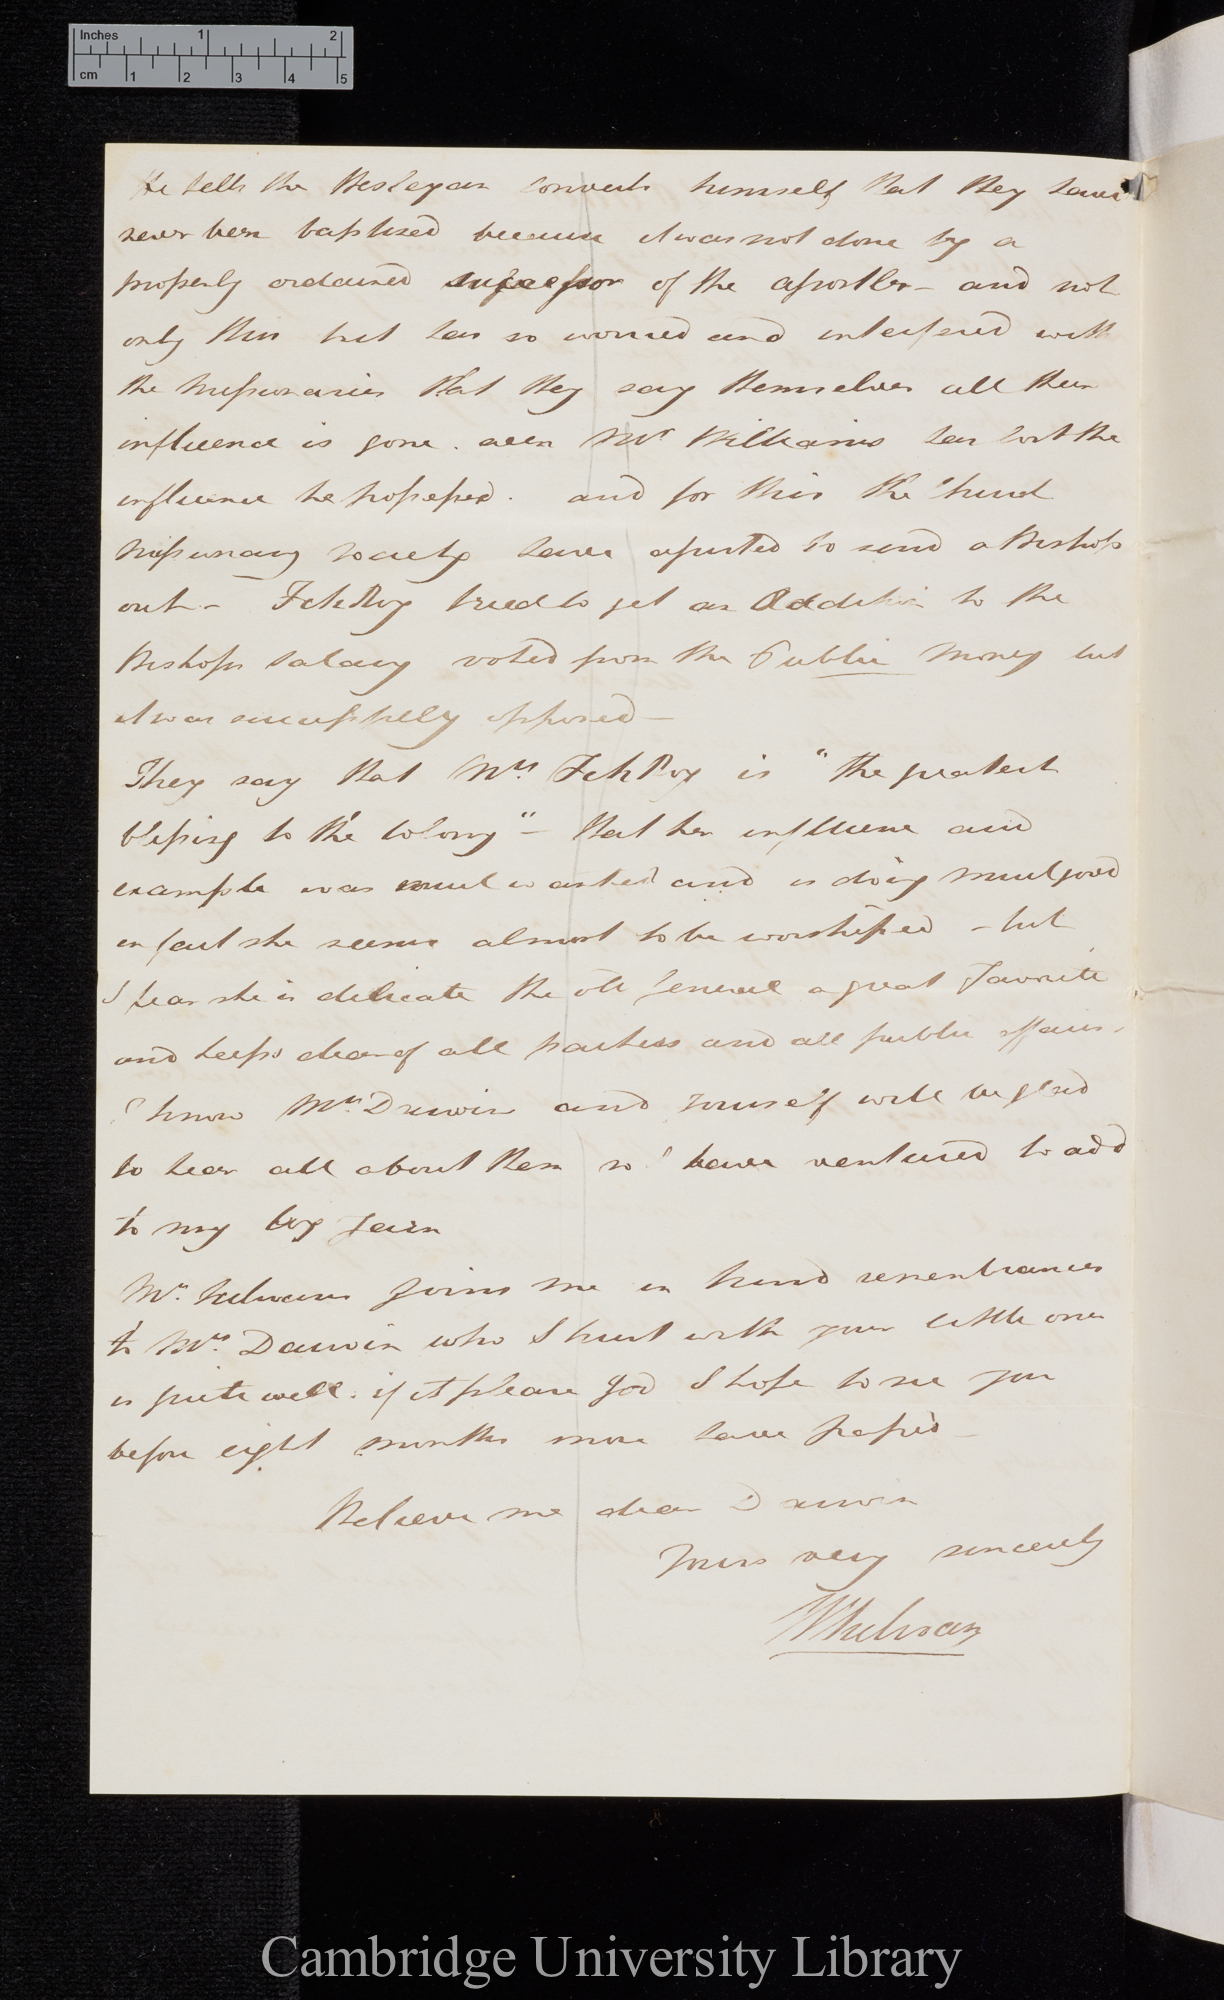 Inches 1 2
cm 1 2 3 4 5
He tells the Wesleyan converts himself that they have
never been baptised because it was not done by a
properly ordained successor of the apostles – and not
only this but has so worried and interfered with
the Missionaries that they say themselves all their
influence is gone. even Mr Williams has lost the
influence he possessed. and for this the Church
Missionary Society have assisted to send a Bishop
out – FitzRoy tried to get an Addition to the
Bishops Salary voted from the Public Money but
it was successfully opposed –
They say that Mrs FitzRoy is "the greatest
blessing to the Colony" – that her influence and
example was much wanted and is doing much good
in fact she seems almost to be worshiped – but
I fear she is delicate the old General a great favorite
and keeps clear of all parties and all public affairs.
I know Mrs Darwin and yourself will be glad
to hear all about them so I have ventured to add
to my long yarn
Mrs. Sulivan joins me in kind remembrances
to Mrs. Darwin who I trust with your little ones
is quite well. if it please God I hope to see you
before eight months more have passed –
Believe me dear Darwin
Yours very sincerely
Sulivan
Cambridge University Library